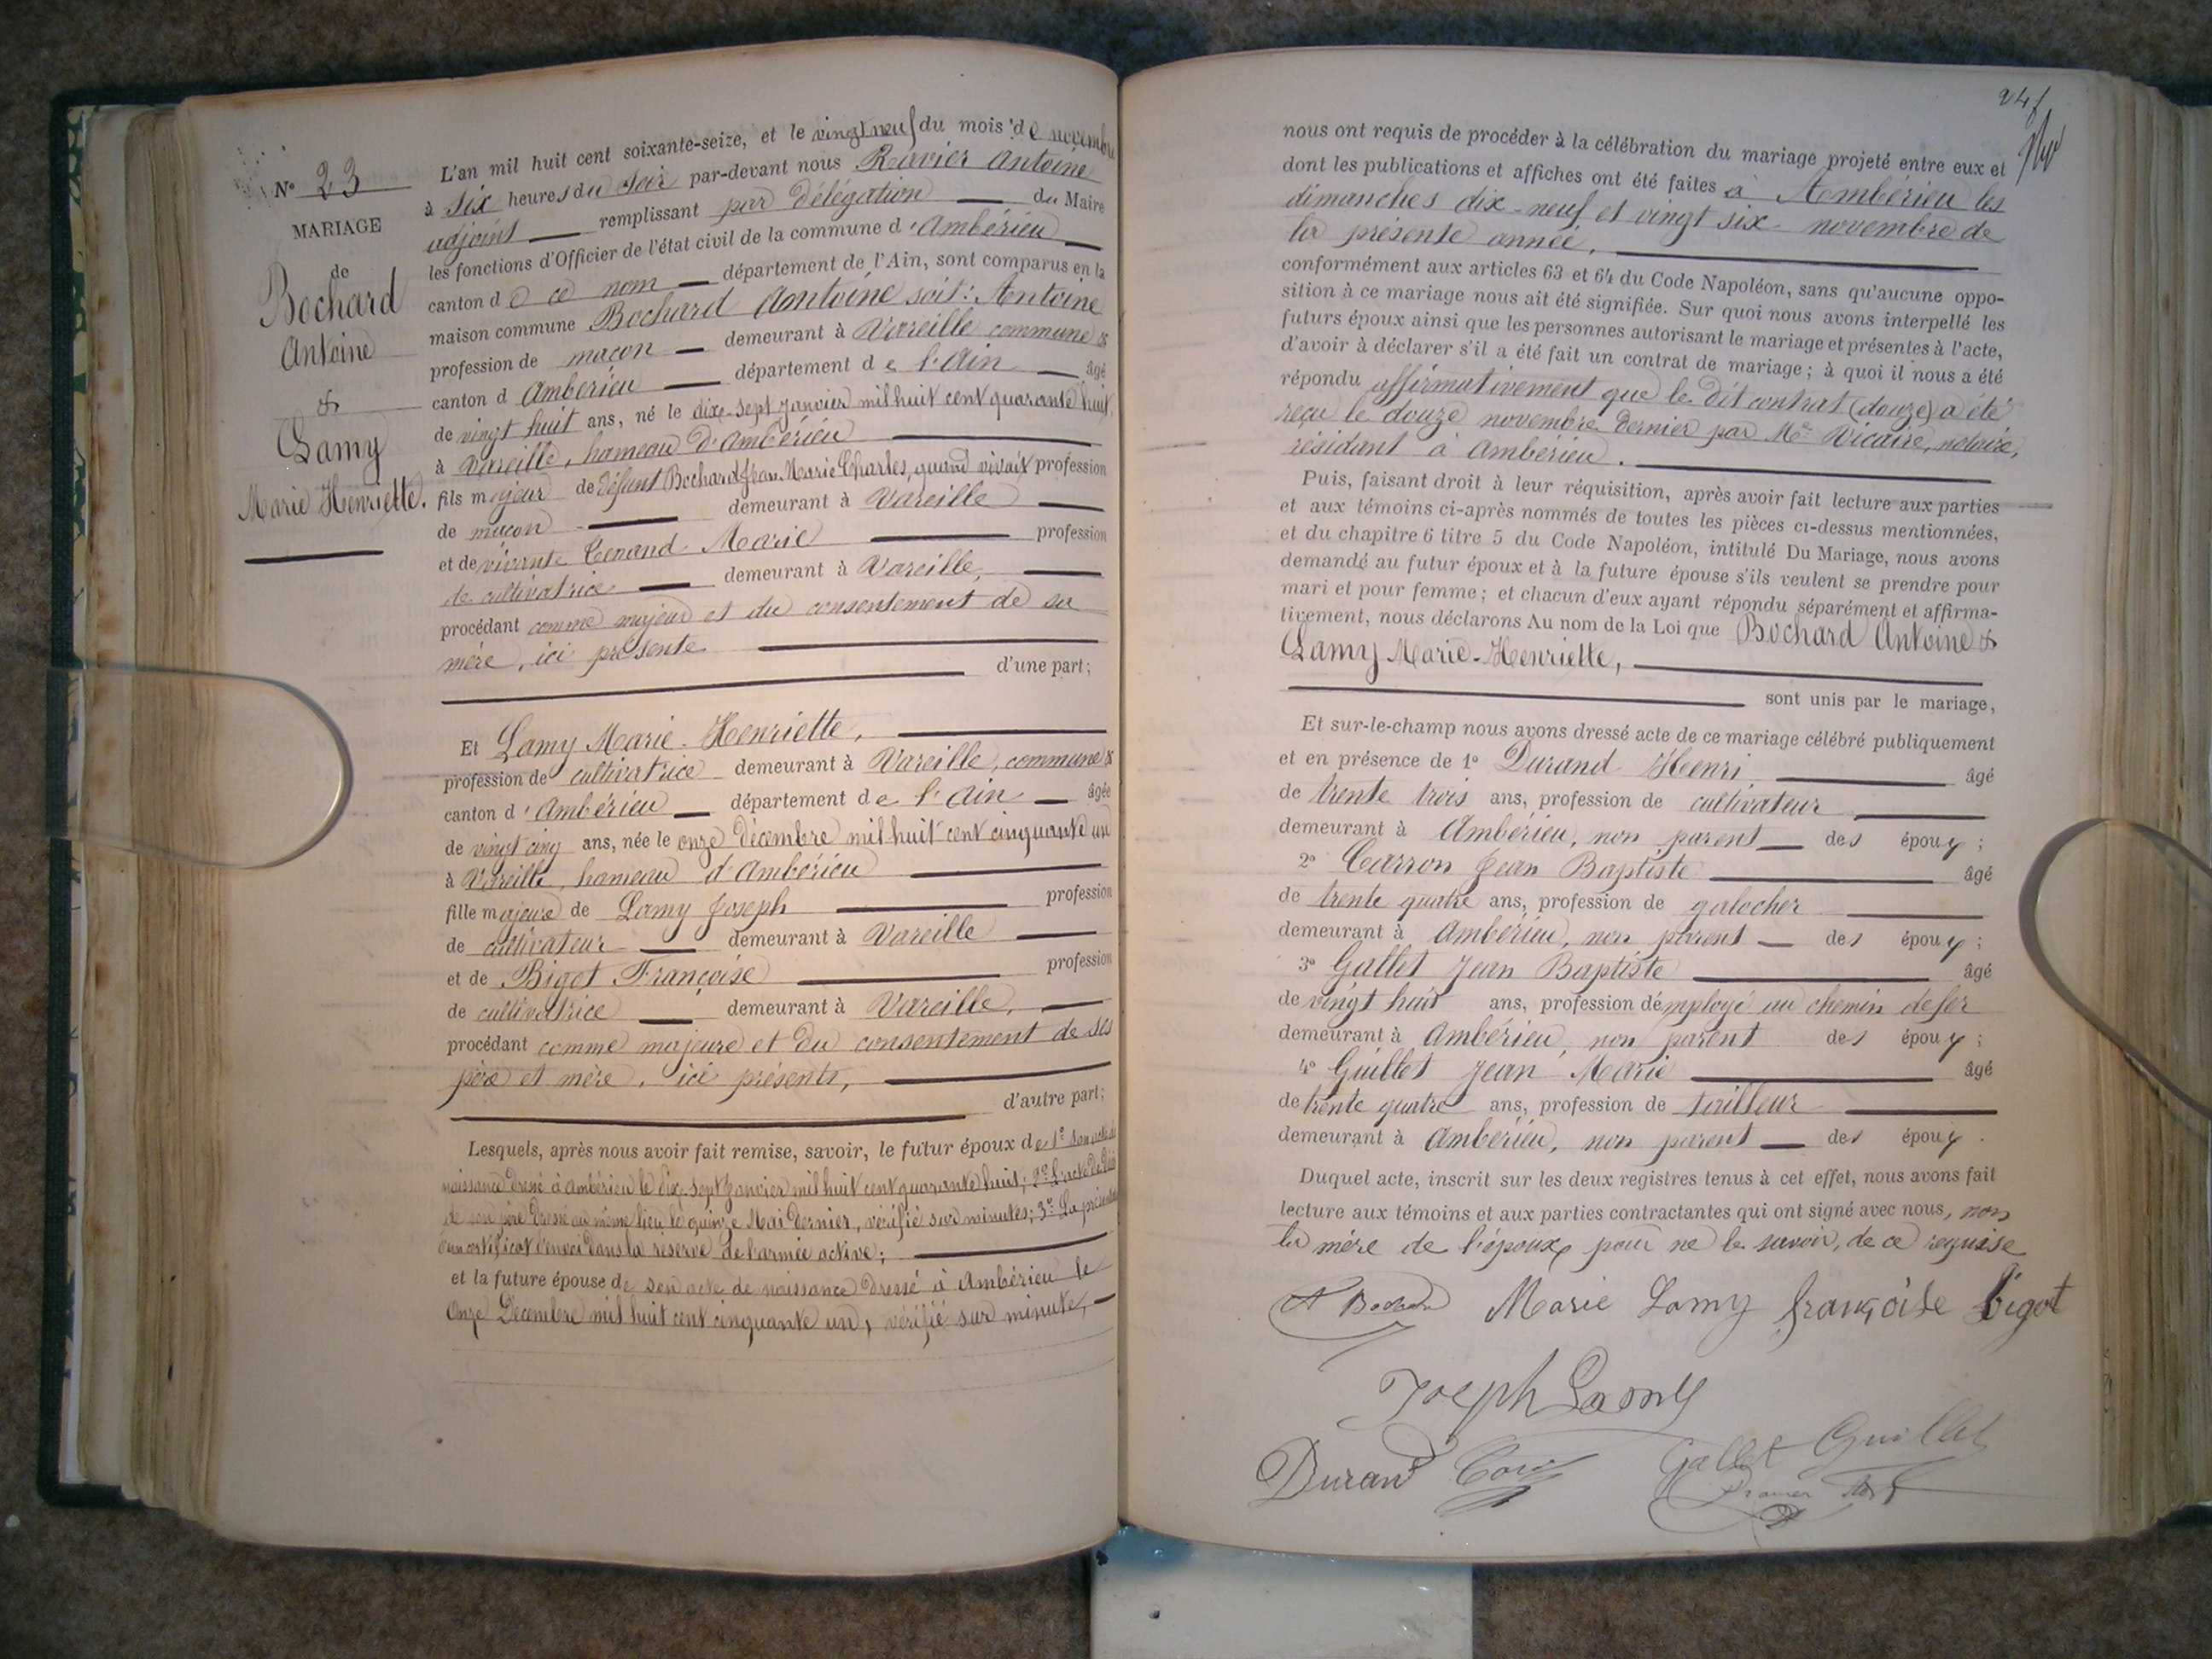 N° 23
MARIAGE
de
Bochard
Antoine
&
Lamy
Marie Henriette.
L'an mil huit cent soixante-seize, et le vingt neuf du mois de novembre
à six heures du soir par-devant nous Ravier Antoine
adjoint remplissant par délégation du Maire
les fonctions d'Officier de l'état civil de la commune d'Ambérieu
canton de ce nom département de l'Ain, sont comparus en la
maison commune Bochard Antoine soit: Antoine
profession de maçon demeurant à Vareille commune &
canton d'Ambérieu département de l'Ain âgé
de vingt huit ans, né le dix-sept janvier mil huit cent quarante huit,
à Vareille, hameau d'Ambérieu
fils majeur de défunt Bochard Jean Marie Charles, quand vivait profession
de maçon demeurant à Vareille
et de vivante Tenand Marie profession
de cultivatrice demeurant à Vareille,
procédant comme majeur et du consentement de sa
mère, ici présente
d'une part;
Et Lamy Marie-Henriette,
profession de cultivatrice demeurant à Vareille, commune &
canton d'Ambérieu département de l'Ain âgée
de vingt cinq ans, née le onze décembre mil huit cent cinquante un
à Vareille, hameau d'Ambérieu
fille majeure de Lamy Joseph profession
de cultivateur demeurant à Vareille
et de Bigot Françoise profession
de cultivatrice demeurant à Vareille,
procédant comme majeure et du consentement de ses
père et mère, ici présents,
d'autre part;
Lesquels, après nous avoir fait remise, savoir, le futur époux de 1° son acte de
naissance dressé à Ambérieu le dix-sept janvier mil huit cent quarante huit; 2° L'acte de décès
de son père dressé au même lieu le quinze Mai dernier, vérifié sur minutes; 3° La présentation
d'un certificat d'envoi dans la réserve de l'armée active;
et la future épouse de son acte de naissance dressé à Ambérieu le
onze Décembre mil huit cent cinquante un, vérifié sur minute,
241
nous ont requis de procéder à la célébration du mariage projeté entre eux et
dont les publications et affiches ont été faites à Ambérieu les
dimanches dix-neuf et vingt six novembre de
la présente année,
conformément aux articles 63 et 64 du Code Napoléon, sans qu'aucune oppo-
sition à ce mariage nous ait été signifiée. Sur quoi nous avons interpellé les
futurs époux ainsi que les personnes autorisant le mariage et présentes à l'acte,
d'avoir à déclarer s'il a été fait un contrat de mariage; à quoi il nous a été
répondu affirmativement que le dit contrat (douze) a été
reçu le douze novembre dernier par Me Vicaire, notaire,
résidant à Ambérieu.
Puis, faisant droit à leur réquisition, après avoir fait lecture aux parties
et aux témoins ci-après nommés de toutes les pièces ci-dessus mentionnées,
et du chapitre 6 titre 5 du Code Napoléon, intitulé Du Mariage, nous avons
demandé au futur époux et à la future épouse s'ils veulent se prendre pour
mari et pour femme; et chacun d'eux ayant répondu séparément et affirma-
tivement, nous déclarons Au nom de la Loi que Bochard Antoine &
Lamy Marie-Henriette,
sont unis par le mariage,
Et sur-le-champ nous avons dressé acte de ce mariage célébré publiquement
et en présence de 1° Durand Henri âgé
de trente trois ans, profession de cultivateur
demeurant à Ambérieu, non parent des époux;
2° Carron Jean Baptiste âgé
de trente quatre ans, profession de galocher
demeurant à Ambérieu, non parent des époux;
3° Gallet Jean Baptiste âgé
de vingt huit ans, profession d'employé au chemin de fer
demeurant à Ambérieu, non parent des époux;
4° Guillet Jean Marie âgé
de trente quatre ans, profession de tailleur
demeurant à Ambérieu, non parent des époux.
Duquel acte, inscrit sur les deux registres tenus à cet effet, nous avons fait
lecture aux témoins et aux parties contractantes qui ont signé avec nous, non
la mère de l'époux, pour ne le savoir, de ce requise
A Bochard Marie Lamy françoise bigot
Joseph Lamy
Durand Gallet Guillet